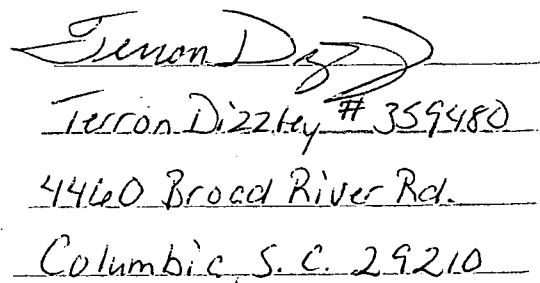 Terron Dizzley
Terron Dizzley # 359480
4460 Broad River Rd.
Columbia, S.C. 29210